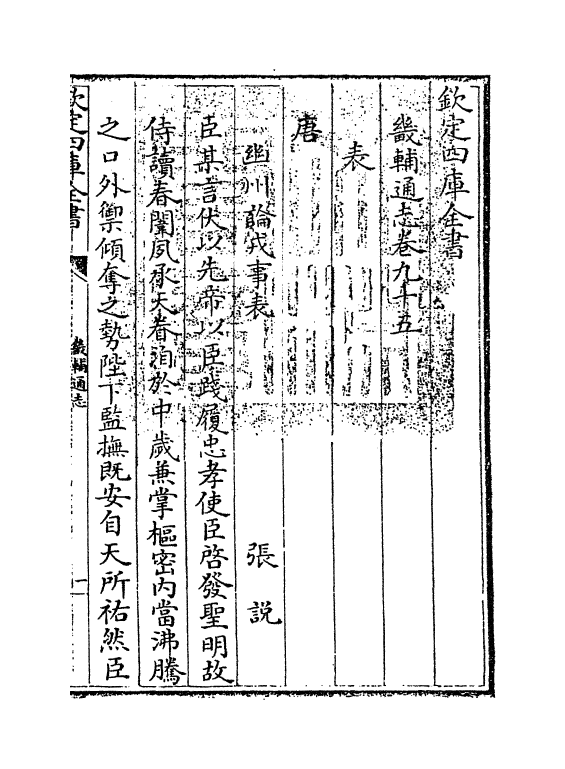 欽定四庫全書
畿輔通志卷九十五
表
唐
幽州論戎事表 張說
臣某言伏以先帝以臣踐履忠孝使臣啓發聖明故
侍讀春闈夙承天眷洎於中歲兼掌樞密内當沸騰
之口外禦傾奪之勢陛下監撫既安自天所祐然臣
欽定四庫全書
畿輔通志
一